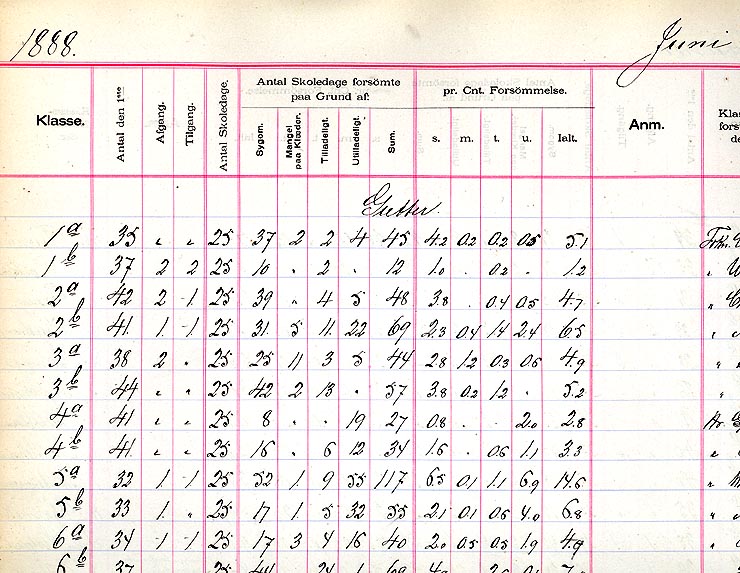 1888. Juni
Antal Skoledage forsömte pr. Cnt. Forsömmelse.
paa Grund af:
Klasse. Antal den 1ste Afgang. Tilgang. Antal Skoledage. Sygom. Mangel paa Klæder. Tilladeligt. Utilladeligt. Sum. s. m. t. u. Ialt. Anm.
Gutter.
1a 35 „ „ 25 37 2 2 4 45 4.2 0.2 0.2 0.5 5.1
1b 37 2 2 25 10 „ 2 „ 12 1.0 „ 0.2 „ 1.2
2a 42 2 1 25 39 „ 4 5 48 3.8 „ 0.4 0.5 4.7
2b 41 1 1 25 31 5 11 22 69 2.3 0.4 1.4 2.4 6.5
3a 38 2 „ 25 25 11 3 5 44 2.8 1.2 0.3 0.6 4.9
3b 44 „ „ 25 42 2 13 „ 57 3.8 0.2 1.2 „ 5.2
4a 41 „ „ 25 8 „ „ 19 27 0.8 „ „ 2.0 2.8
4b 41 „ „ 25 16 „ 6 12 34 1.6 „ 0.6 1.1 3.3
5a 32 1 1 25 52 1 9 55 117 6.5 0.1 1.1 6.9 14.6
5b 33 1 „ 25 17 1 5 32 55 2.1 0.1 0.6 4.0 6.8
6a 34 1 1 25 17 3 4 16 40 2.0 0.5 0.5 1.9 4.9
6b 37